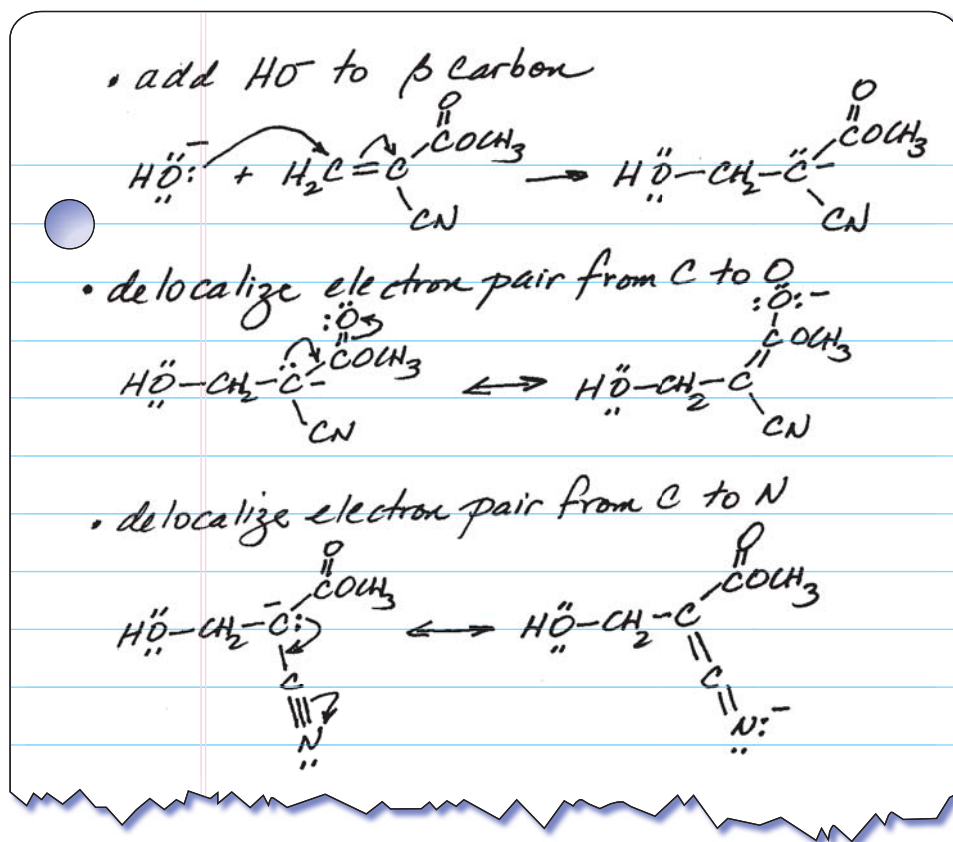 • add HO⁻ to β carbon
HÖ:⁻ + H₂C=C COCH₃ O CN → HÖ–CH₂–C̈⁻ COCH₃ O CN
• delocalize electron pair from C to O
HÖ–CH₂–C̈⁻ COCH₃ :Ö CN ↔ HÖ–CH₂–C C OCH₃ :Ö:⁻ CN
• delocalize electron pair from C to N
HÖ–CH₂–C:⁻ COCH₃ O C≡N: ↔ HÖ–CH₂–C COCH₃ O =C=N:⁻